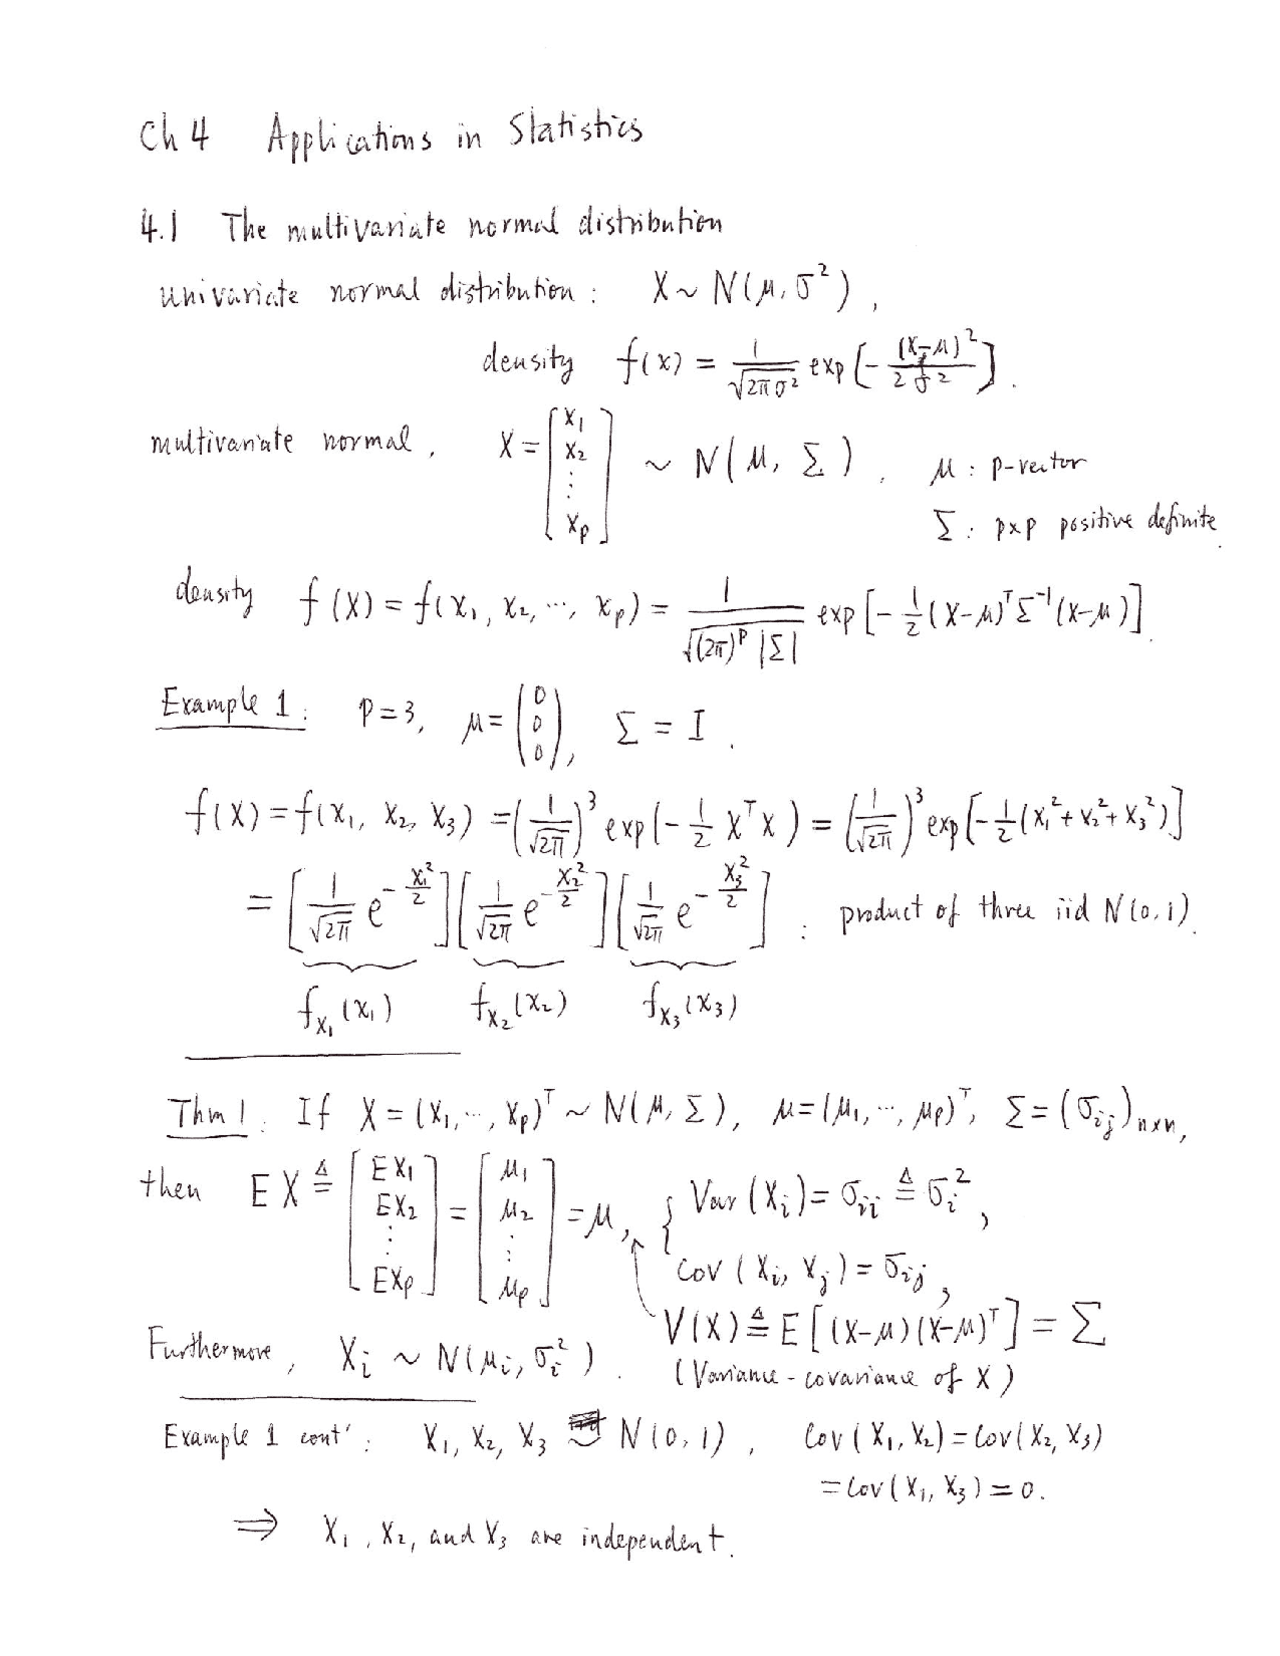 Ch 4 Applications in Statistics
4.1 The multivariate normal distribution
univariate normal distribution : X ~ N(μ, σ²),
density f(x) = 1/√(2πσ²) exp[-(x-μ)²/(2σ²)].
multivariate normal, X = [X₁ X₂ ⋮ Xp] ~ N(μ, Σ), μ : p-vector
Σ : p×p positive definite
density f(X) = f(x₁, x₂, ⋯, xp) = 1/√((2π)^p |Σ|) exp[-½(X-μ)ᵀΣ⁻¹(X-μ)].
Example 1: p=3, μ = (0 0 0), Σ = I.
f(X) = f(x₁, x₂, x₃) = (1/√(2π))³ exp(-½ XᵀX) = (1/√(2π))³ exp[-½(x₁²+x₂²+x₃²)]
= [1/√(2π) e^(-x₁²/2)] [1/√(2π) e^(-x₂²/2)] [1/√(2π) e^(-x₃²/2)] : product of three iid N(0,1).
f_X₁(x₁) f_X₂(x₂) f_X₃(x₃)
Thm 1. If X = (X₁, ⋯, Xp)ᵀ ~ N(μ, Σ), μ = (μ₁, ⋯, μp)ᵀ, Σ = (σij)n×n,
then EX ≜ [EX₁ EX₂ ⋮ EXp] = [μ₁ μ₂ ⋮ μp] = μ, { Var(Xi) = σii ≜ σi²,
Cov(Xi, Xj) = σij,
V(X) ≜ E[(X-μ)(X-μ)ᵀ] = Σ
Furthermore, Xi ~ N(μi, σi²). (Variance-covariance of X)
Example 1 cont' : X₁, X₂, X₃ ~ N(0,1), Cov(X₁, X₂) = Cov(X₂, X₃)
= Cov(X₁, X₃) = 0.
⇒ X₁, X₂, and X₃ are independent.